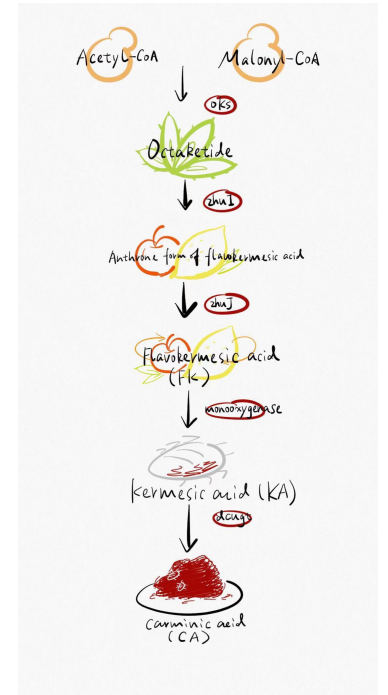 Acetyl-CoA Malonyl-CoA
OKS
Octaketide
zhuI
Anthrone form of flavokermesic acid
zhuJ
Flavokermesic acid
(FK)
monooxygenase
kermesic acid (KA)
dcugt
carminic acid
(CA)